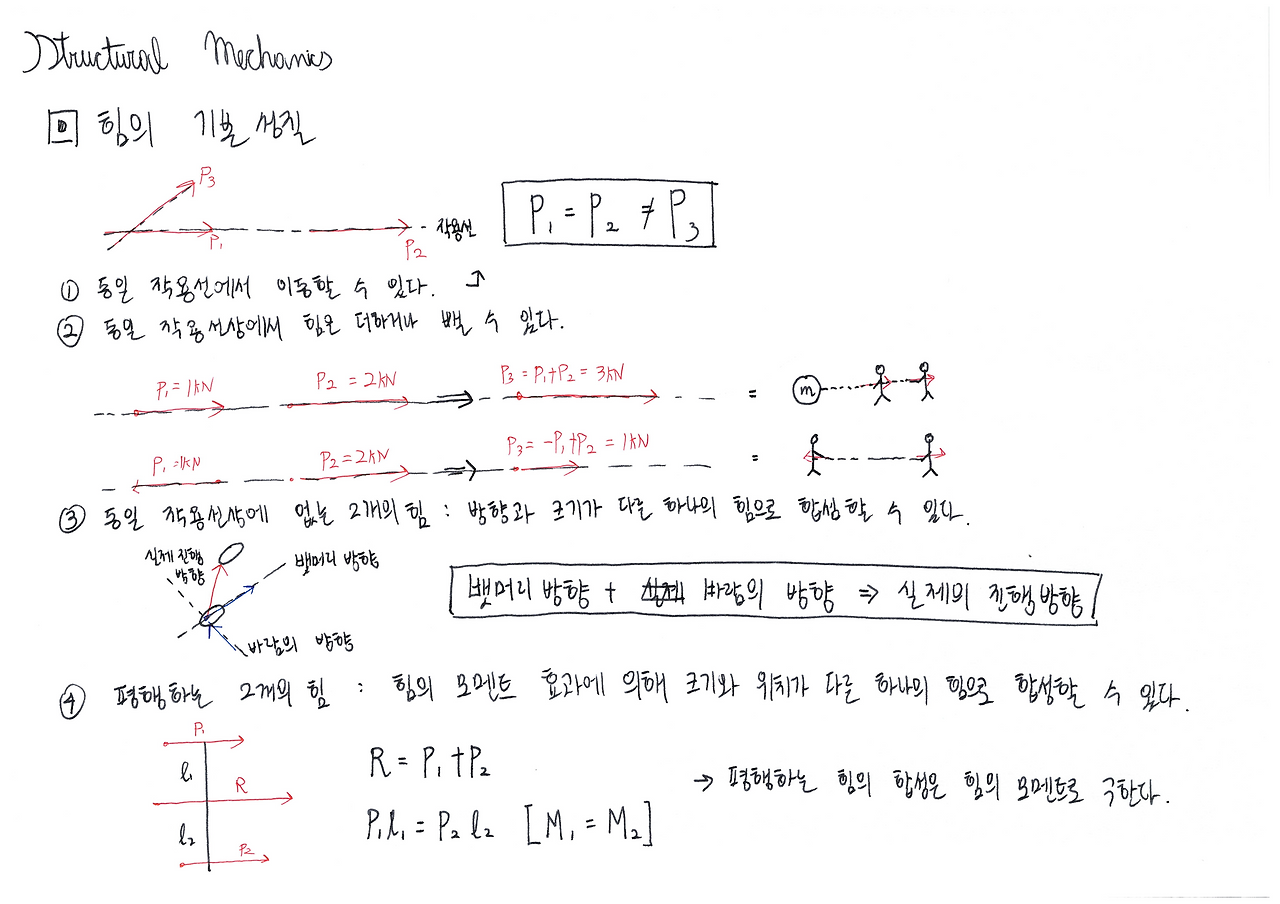 Structural Mechanics
힘의 기본성질
P₃
P₁ = P₂ ≠ P₃
P₁
P₂
작용선
① 동일 작용선에서 이동할 수 있다.
② 동일 작용선상에서 힘은 더하거나 뺄 수 있다.
P₁ = 1kN
P₂ = 2kN
⇒
P₃ = P₁+P₂ = 3kN
=
m
P₁ = 1kN
P₂ = 2kN
⇒
P₃ = -P₁+P₂ = 1kN
=
③ 동일 작용선상에 없는 2개의 힘 : 방향과 크기가 다른 하나의 힘으로 합성할 수 있다.
실제 진행
방향
뱃머리 방향
바람의 방향
뱃머리 방향 + 바람의 방향 ⇒ 실제의 진행방향
④ 평행하는 2개의 힘 : 힘의 모멘트 효과에 의해 크기와 위치가 다른 하나의 힘으로 합성할 수 있다.
P₁
l₁
R
l₂
P₂
R = P₁+P₂
P₁l₁ = P₂l₂ [M₁ = M₂]
→ 평행하는 힘의 합성은 힘의 모멘트로 구한다.